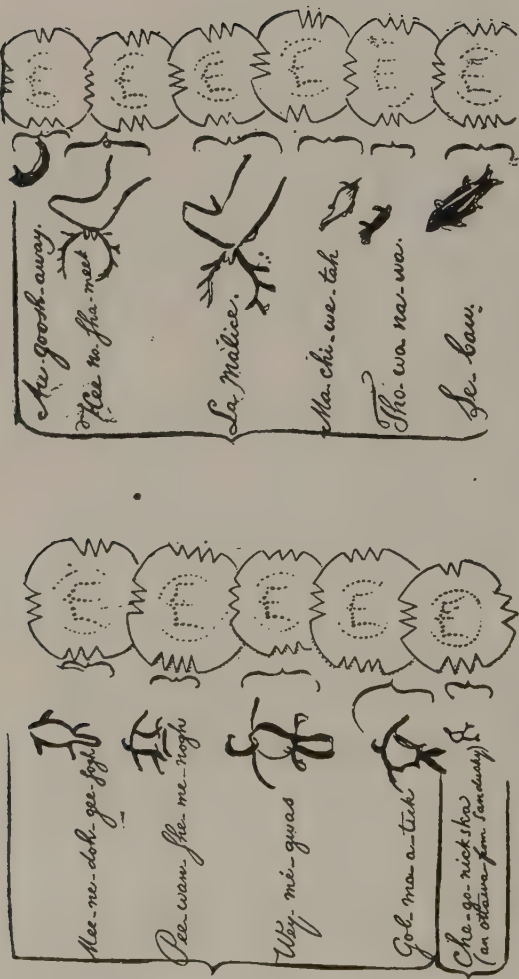 Mee-ne-doh-gee-sogh
Pee-wan-she-me-nogh
Wey-me-gwas
Gob-ma-a-tick
Che-go-nickska
(an ottawa from Sandusky)
Au-goosh-away.
Kee no sha-meek
La Malice.
Ma-chi-we-tah
Tho-wa na-wa.
Se-caw.